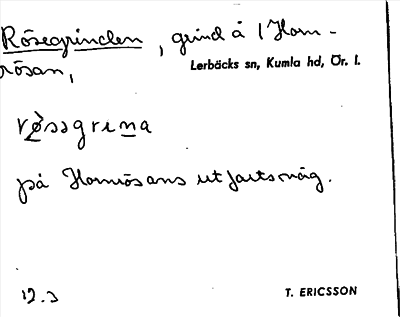 Rösegrinden, grind å 1 Horn-
rösan,
Lerbäcks sn, Kumla hd, Ör. l.
røssgrina
på Hornrösans utfartsväg.
12.3
T. ERICSSON